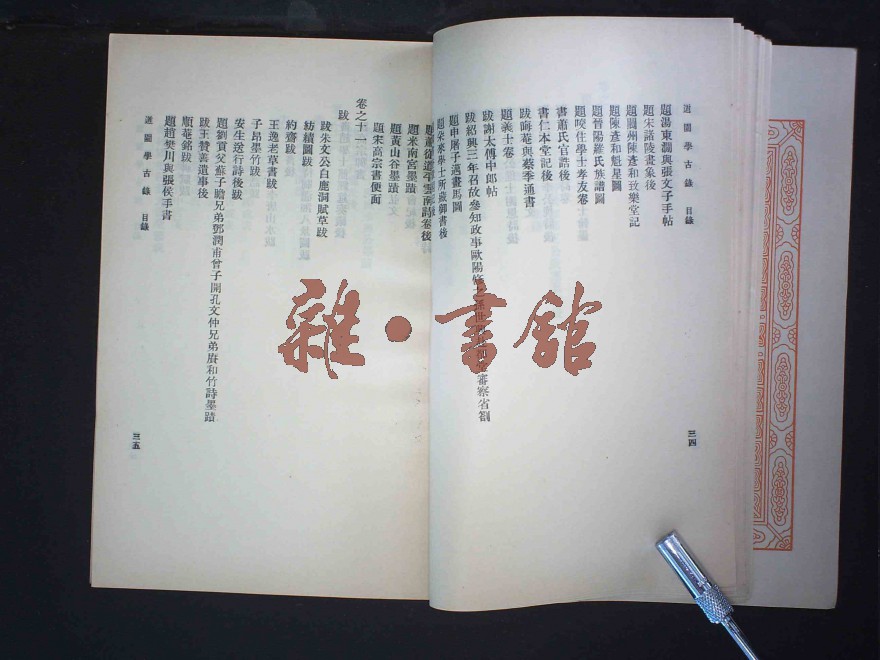 道園學古錄 目錄
題湯東澗與張文子手帖
題宋諸陵畫象後
題閬州陳彥和致樂堂記
題陳彥和魁星圖
題晉陽羅氏族譜圖
題咬住學士孝友卷
書蕭氏官誥後
書仁本堂記後
跋晦菴與蔡季通書
題義士卷
跋謝太傅中郎帖
跋紹興三年召故參知政事歐陽修 審察省劄
題申屠子邁畫馬圖
題朶來學士所藏御書後
三四
雜·書館
題 道平雲南詩卷後
題米南宮墨蹟
題黃山谷墨蹟
題宋高宗書便面
卷之十一
跋
跋朱文公白鹿洞賦草跋
紡績圖跋
約齋跋
王逸老草書跋
子昂墨竹跋
安生送行詩後跋
題劉貢父蘇子瞻兄弟鄧潤甫曾子開孔文仲兄弟賡和竹詩墨蹟
跋王贊善遺事後
順菴銘跋
題趙樊川與張侯手書
道園學古錄 目錄
三五